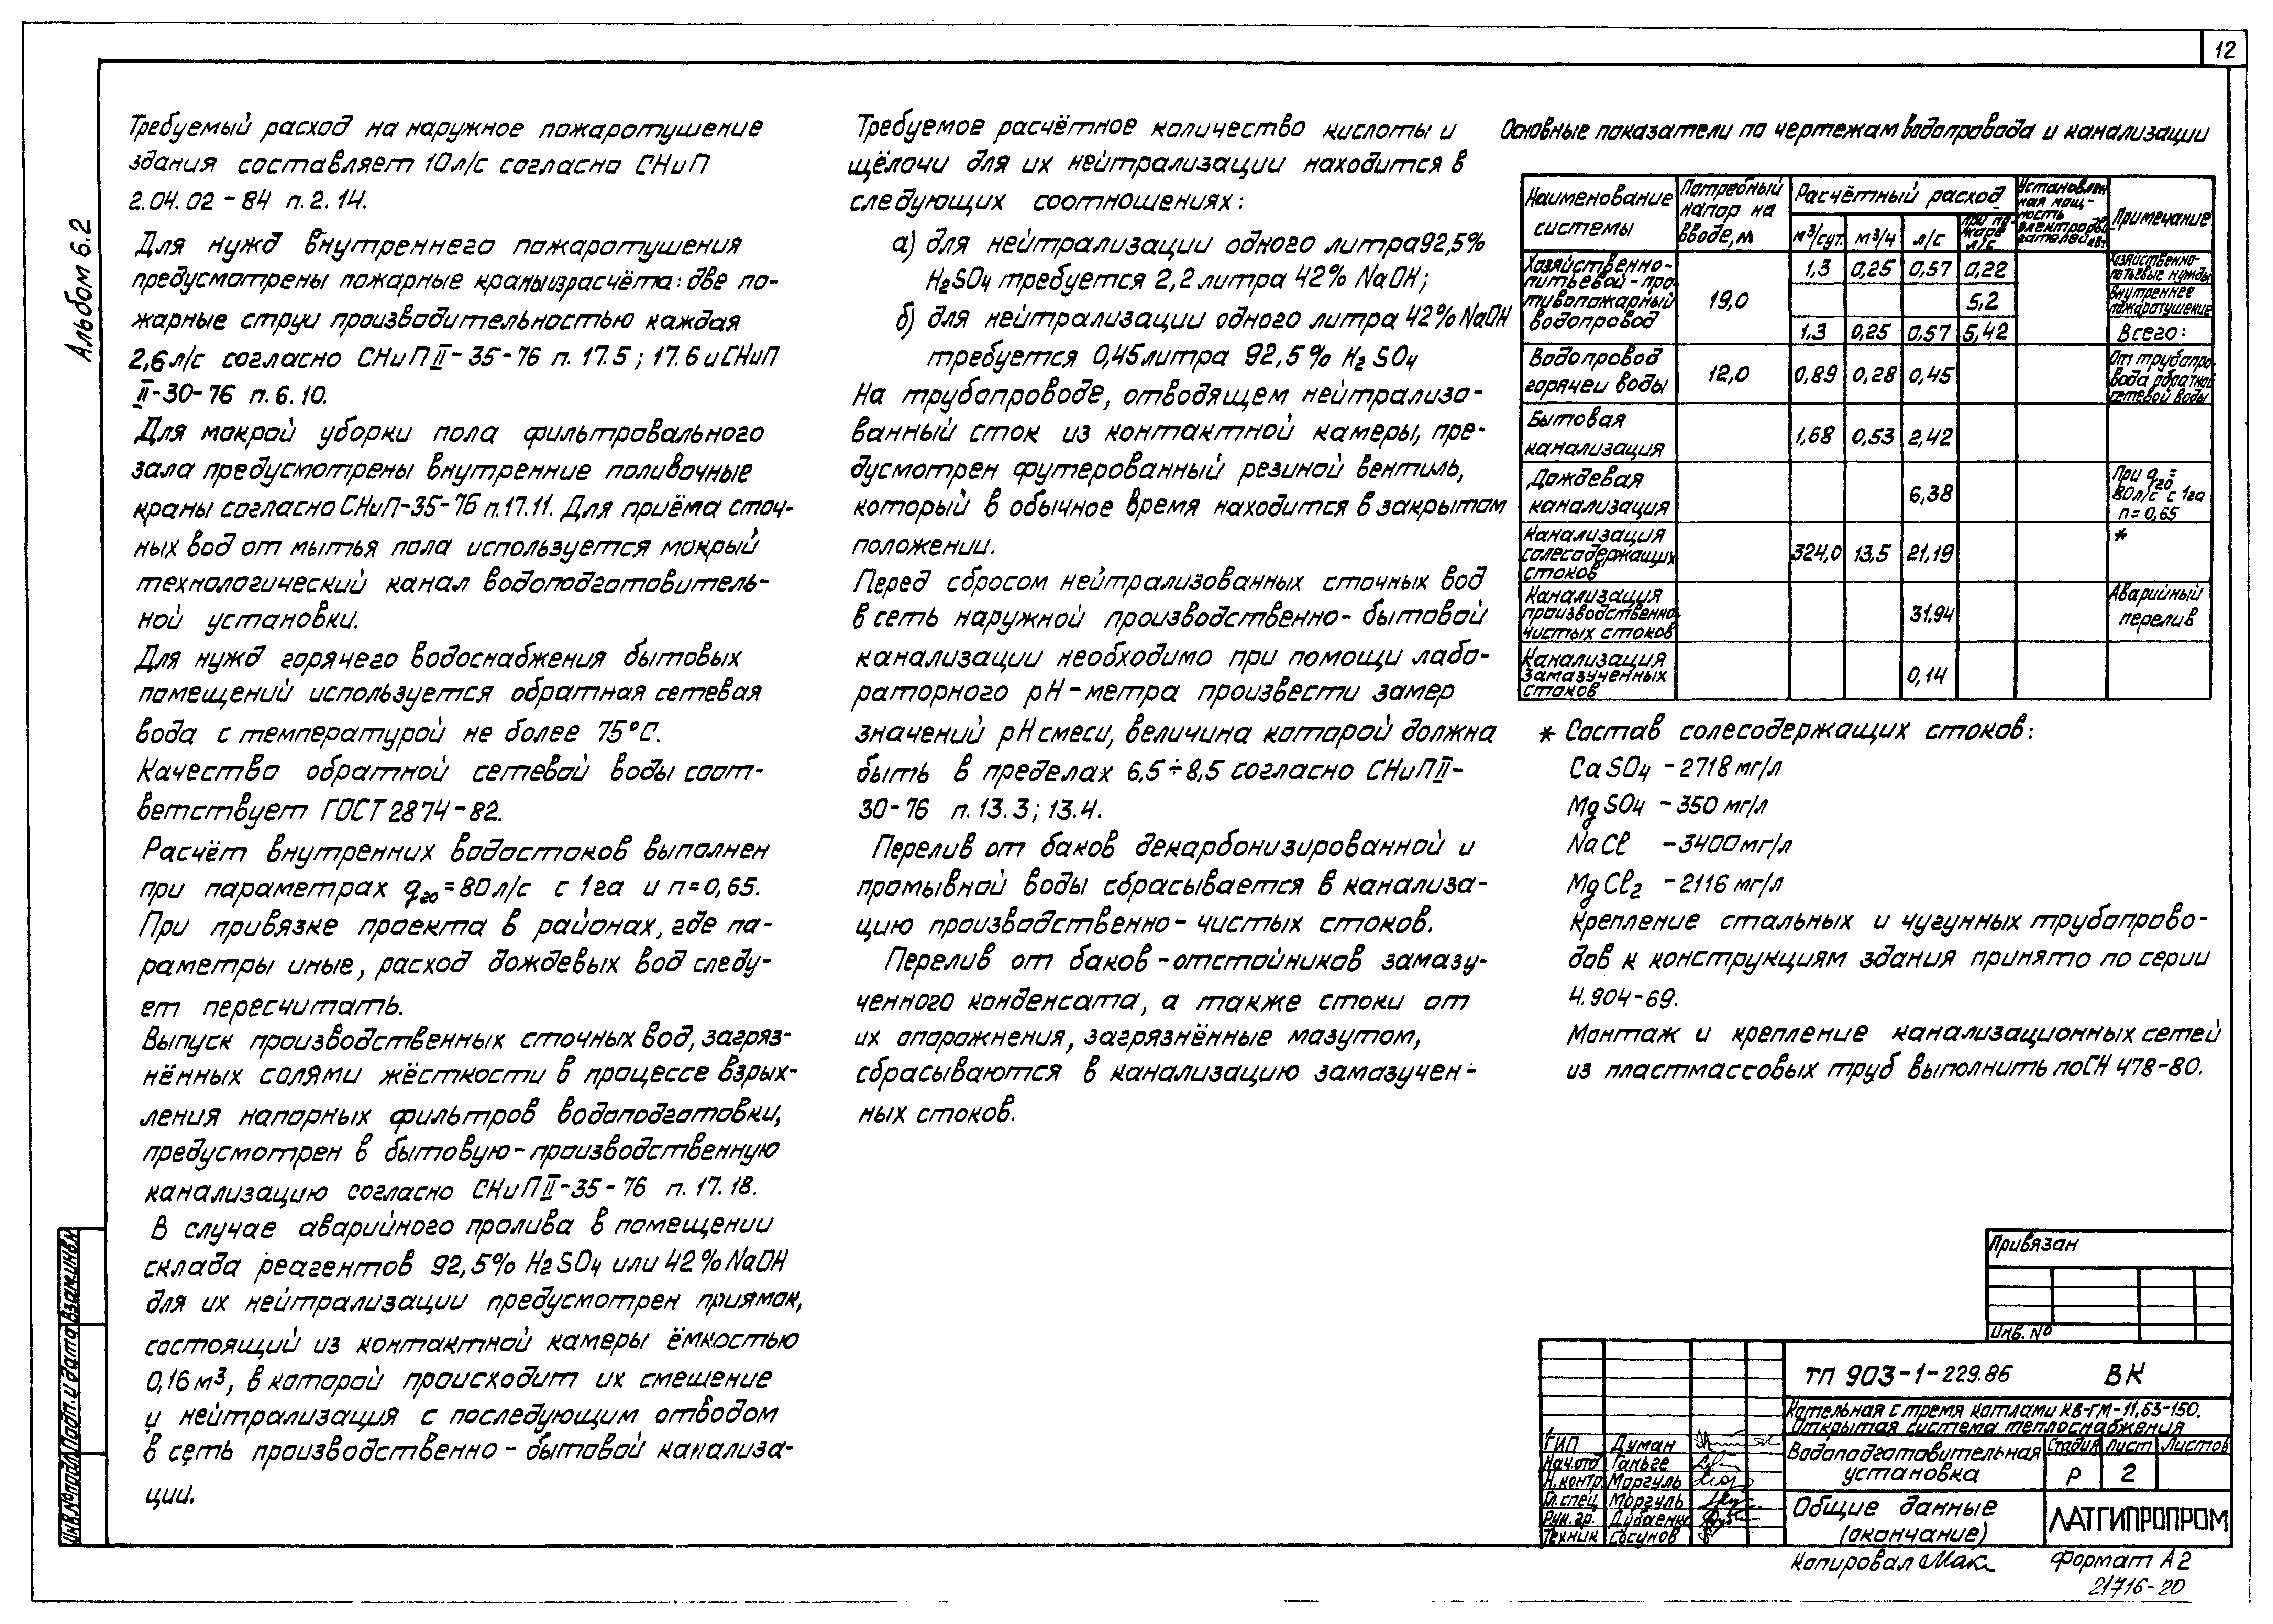 12
Альбом 6.2
Требуемый расход на наружное пожаротушение
здания составляет 10л/с согласно СНиП
2.04.02-84 п.2.14.
Для нужд внутреннего пожаротушения
предусмотрены пожарные краны из расчёта: две по-
жарные струи производительностью каждая
2,6 л/с согласно СНиП II-35-76 п. 17.5; 17.6 и СНиП
II-30-76 п.6.10.
Для мокрой уборки пола фильтровального
зала предусмотрены внутренние поливочные
краны согласно СНиП-35-76 п.17.11. Для приёма сточ-
ных вод от мытья пола используется мокрый
технологический канал водоподготовитель-
ной установки.
Для нужд горячего водоснабжения бытовых
помещений используется обратная сетевая
вода с температурой не более 75°С.
Качество обратной сетевой воды соот-
ветствует ГОСТ 2874-82.
Расчёт внутренних водостоков выполнен
при параметрах q20=80л/с с 1га и п=0,65.
При привязке проекта в районах, где па-
раметры иные, расход дождевых вод следу-
ет пересчитать.
Выпуск производственных сточных вод, загряз-
нённых солями жёсткости в процессе взрых-
ления напорных фильтров водоподготовки,
предусмотрен в бытовую-производственную
канализацию согласно СНиП II-35-76 п.17.18.
В случае аварийного пролива в помещении
склада реагентов 92,5% H2SO4 или 42% NaOH
для их нейтрализации предусмотрен приямок,
состоящий из контактной камеры ёмкостью
0,16 м3, в которой происходит их смешение
и нейтрализация с последующим отводом
в сеть производственно-бытовой канализа-
ции.
Требуемое расчётное количество кислоты и
щёлочи для их нейтрализации находится в
следующих соотношениях:
а) для нейтрализации одного литра 92,5%
H2SO4 требуется 2,2 литра 42% NaOH;
б) для нейтрализации одного литра 42% NaOH
требуется 0,45 литра 92,5% H2SO4
На трубопроводе, отводящем нейтрализо-
ванный сток из контактной камеры, пре-
дусмотрен футерованный резиной вентиль,
который в обычное время находится в закрытом
положении.
Перед сбросом нейтрализованных сточных вод
в сеть наружной производственно-бытовой
канализации необходимо при помощи лабо-
раторного pH-метра произвести замер
значений pH смеси, величина которой должна
быть в пределах 6,5÷8,5 согласно СНиП II-
30-76 п.13.3; 13.4.
Перелив от баков декарбонизированной и
промывной воды сбрасывается в канализа-
цию производственно-чистых стоков.
Перелив от баков-отстойников замазу-
ченного конденсата, а также стоки от
их опорожнения, загрязнённые мазутом,
сбрасываются в канализацию замазучен-
ных стоков.
Основные показатели по чертежам водопровода и канализации
Наименование системы | Потребный напор на вводе, м | Расчётный расход | Установлен ная мощ- ность электродви зателей квт | Примечание
м3/сут. | м3/ч | л/с | при по- жаре л/с
Хозяйственно- питьевой-про тивопожарный водопровод | 19,0 | 1,3 | 0,25 | 0,57 | 0,22 | Хозяйственно- питьевые нужды
5,2 | Внутреннее пожаротушение
1.3 | 0,25 | 0,57 | 5,42 | Всего:
Водопровод горячей воды | 12,0 | 0,89 | 0,28 | 0,45 | От трубопро вода обратной сетевой воды
Бытовая канализация | 1,68 | 0,53 | 2,42
Дождевая канализация | 6,38 | При q20= 80л/с с 1га п=0,65
Канализация солесодержащих стоков | 324,0 | 13,5 | 21,19 | *
Канализация производственно- чистых стоков | 31,94 | Аварийный перелив
Канализация замазученных стоков | 0,14
* Состав солесодержащих стоков:
CaSO4 -2718 мг/л
MgSO4 -350 мг/л
NaCl -3400мг/л
MgCl2 -2116 мг/л
Крепление стальных и чугунных трубопрово-
дов к конструкциям здания принято по серии
4.904-69.
Монтаж и крепление канализационных сетей
из пластмассовых труб выполнить по СН 478-80.
Привязан
Инв. №
ТП 903-1-229.86 ВК
Котельная с тремя котлами КВ-ГМ-11,63-150.
Открытая система теплоснабжения
ГИП Думан
Нач.отд Ганьге
Н.контр. Моргуль
Гл.спец Моргуль
Рук.гр. Дубаенко
Техник Сосунов
Водоподготовительная
установка
Стадия Лист Листов
Р 2
Общие данные
(окончание)
ЛАТГИПРОПРОМ
Копировал Мак
Формат А2
21716-20
Инв.№подл. Подп. и дата Взам.инв.№